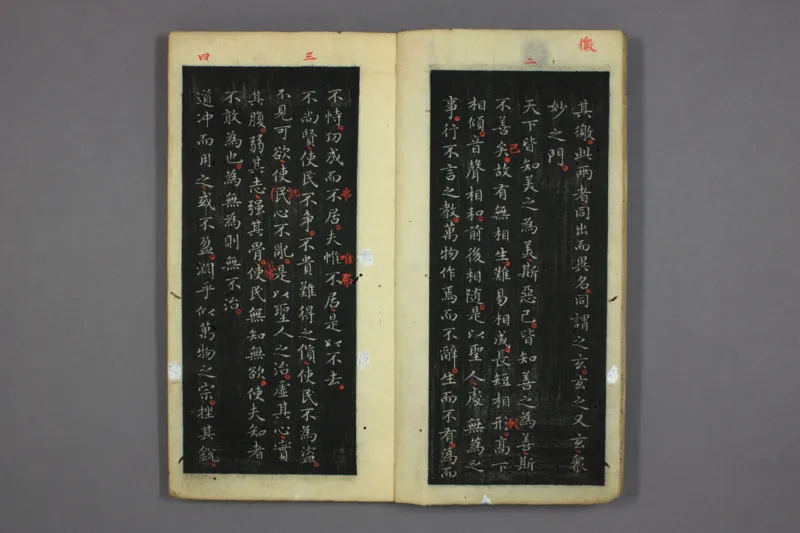 徼
其徼此兩者同出而異名同謂之玄玄之又玄衆
妙之門
二
天下皆知美之為美斯惡已皆知善之為善斯
不善矣故有無相生難易相成長短相形高下
已
相傾音聲相和前後相隨是以聖人處無為之
事行不言之教萬物作焉而不辭生而不有為而
不恃功成而不居夫惟不居是以不去
唯
三
不尚賢使民不爭不貴難得之貨使民不為盜
不見可欲使民心不亂是以聖人之治虛其心實
其腹弱其志强其骨使民無知無欲使夫知者
不敢為也為無為則無不治
四
道冲而用之或不盈淵乎似萬物之宗挫其銳